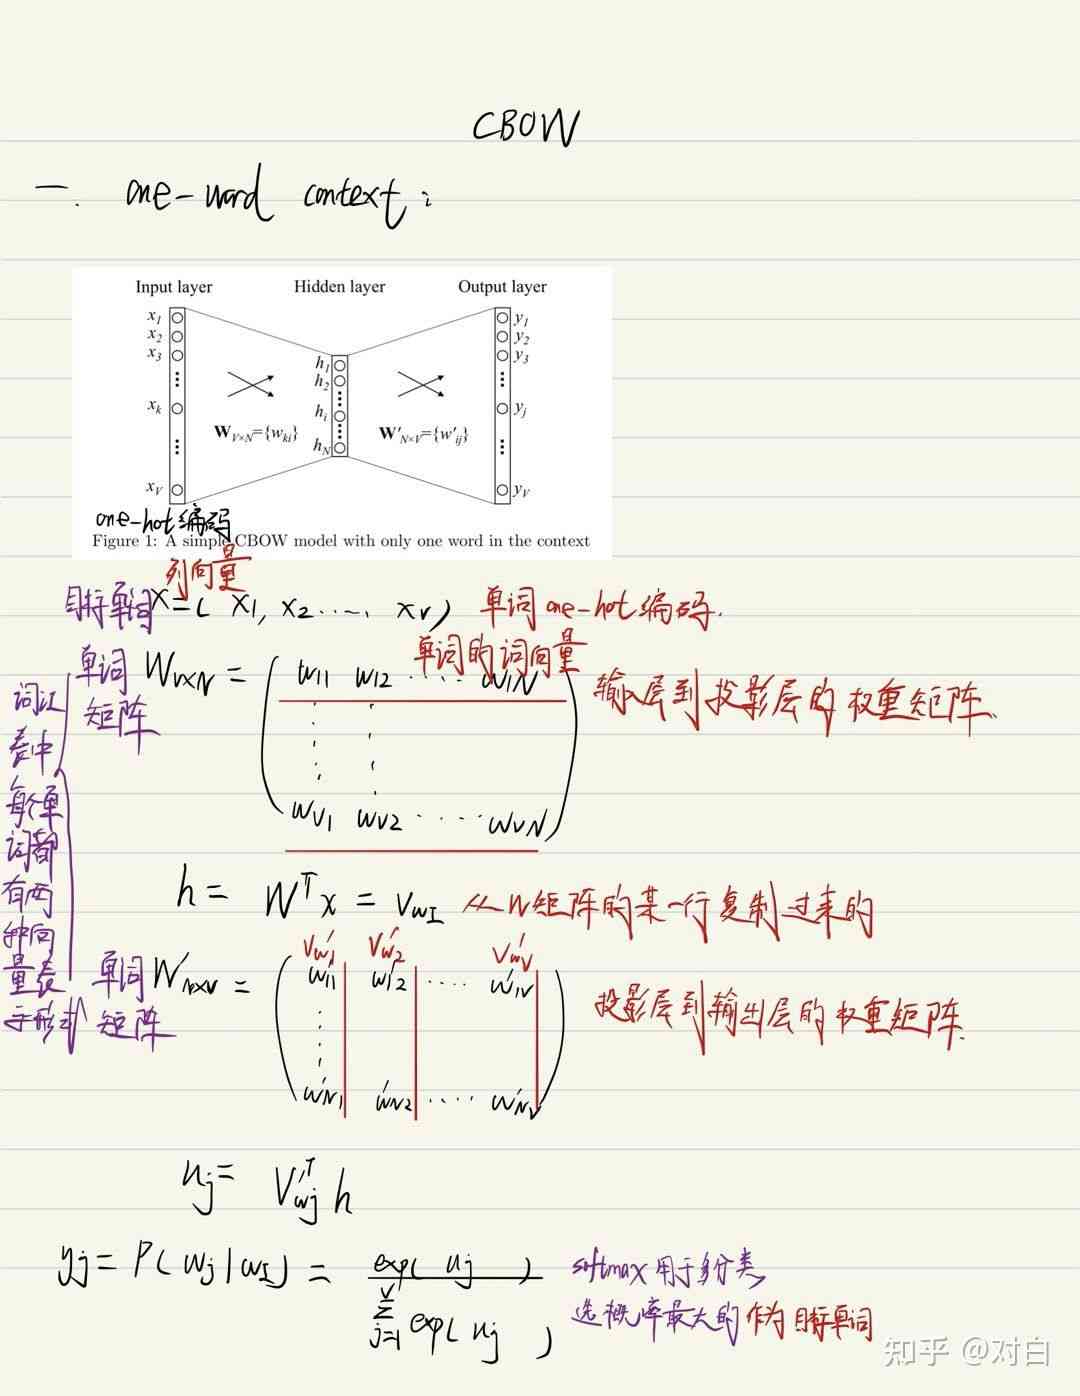 CBOW
一. one-word context:
Input layer Hidden layer Output layer
x1 y1
x2 y2
x3 y3
h1
h2
xk hi yj
W_{V×N}={w_{ki}} W'_{N×V}={w'_{ij}}
hN
xV yV
one-hot编码
Figure 1: A simple CBOW model with only one word in the context
列向量
目标单词 x=( x1, x2 ....., xv) 单词one-hot编码.
单词的词向量
单词矩阵 W_{V×N} = ( w11 w12 ..... w1N
wv1 wv2 ..... wvN ) 输入层到投影层的权重矩阵.
词汇表中每个单词都有两种向量表示形式
h = W^T x = v_{wI} 从W矩阵的某一行复制过来的
v'w1 v'w2 v'wv
单词矩阵 W'_{N×V} = ( w'11 w'12 .... w'1V
w'N1 w'N2 .... w'NV ) 投影层到输出层的权重矩阵.
uj = v'^T_{wj} h
yj = P( wj | wI ) = exp( uj ) / Σ_{j=1}^{V} exp( uj )
softmax用于多分类
选概率最大的作为目标单词
知乎 @对白